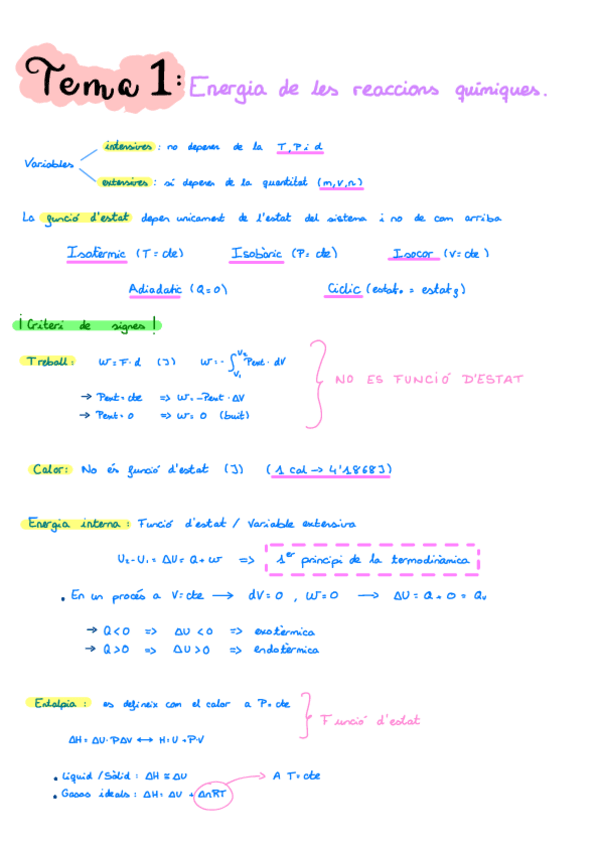 Tema 1: Energia de les reaccions químiques.
Variables
intensives: no depenen de la T, P i d
extensives: sí depenen de la quantitat (m, v, n)
La funció d'estat depen unicament de l'estat del sistema i no de com arriba
Isotèrmic (T = cte) Isobàric (P= cte) Isocor (V= cte)
Adiadatic (Q=0) Cíclic (estat₀ = estat f)
¡Criteri de signes!
Treball: W = F·d (J) W = - ∫ V₁ V₂ Pext · dV
→ Pext = cte => W = -Pext · ΔV
→ Pext = 0 => W = 0 (buit)
NO ES FUNCIÓ D'ESTAT
Calor: No és funció d'estat (J) (1 cal -> 4'1868J)
Energia interna: Funció d'estat / Variable extensiva
U₂ - U₁ = ΔU = Q + W => 1er principi de la termodinàmica
• En un procés a V=cte → dV=0, W=0 → ΔU = Q + 0 = Qv
→ Q<0 => ΔU <0 => exotèrmica
→ Q>0 => ΔU>0 => endotèrmica
Entalpia: es defineix com el calor a P=cte
ΔH = ΔU · PΔV ↔ H = U + P·V
Funció d'estat
• Líquid / Sòlid: ΔH ≅ ΔU
• Gasos ideals: ΔH = ΔU + ΔnRT → A T=cte